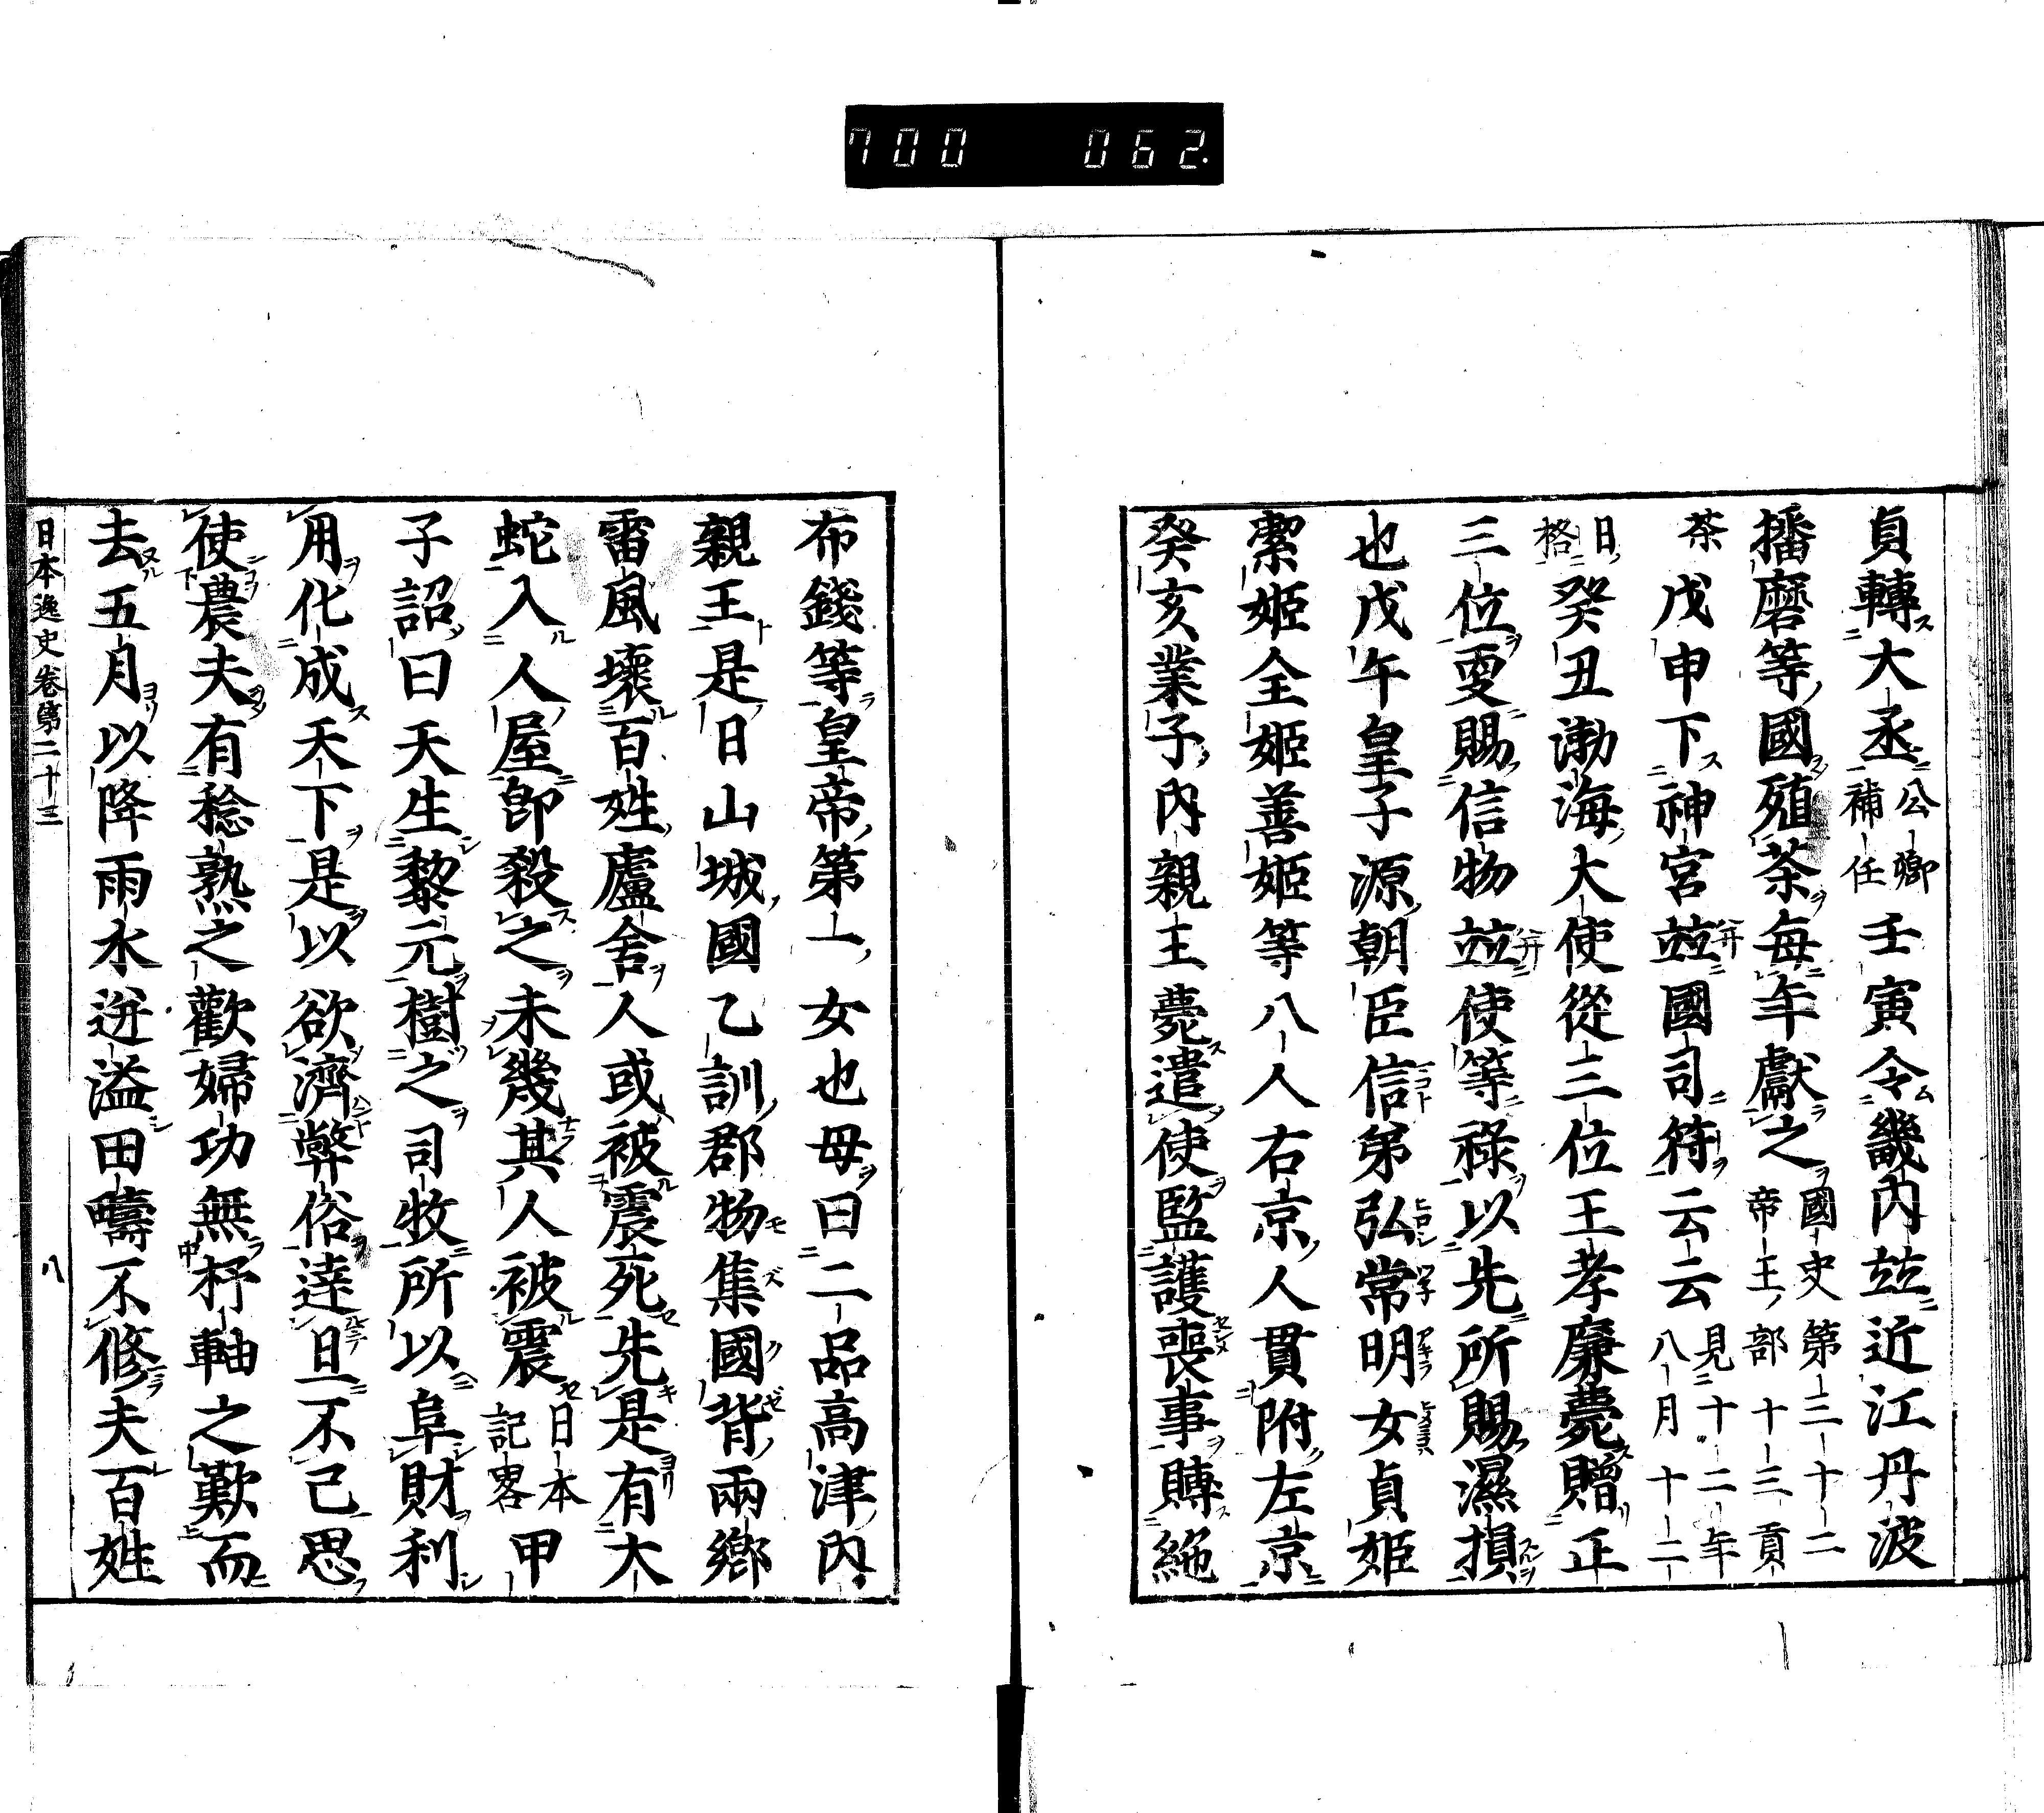 700 062
貞轉大丞公卿補任壬寅令畿內竝近江丹波
播磨等國殖茶每年獻之國史第三十二帝王部十三貢
茶戊申下神宮竝國司符云云見十二年八月十二
日格癸丑渤海大使從三位王孝廉薨贈正
三位更賜信物竝使等祿以先所賜濕損
也戊午皇子源朝臣信弟弘常明女貞姬
潔姬全姬善姬等八人右京人貫附左京
癸亥業子內親王薨遣使監護喪事賻絁
布錢等皇帝第一女也母曰二品高津內
親王是日山城國乙訓郡物集國背兩鄉
雷風壞百姓廬舍人或被震死先是有大
蛇入人屋卽殺之未幾其人被震日本記畧甲
子詔曰天生黎元樹之司牧所以阜財利
用化成天下是以欲濟弊俗達旦不已思
使農夫有稔熟之歡婦功無杼軸之歎而
去五月以降雨水逬溢田疇不修夫百姓
日本逸史卷第二十三
八